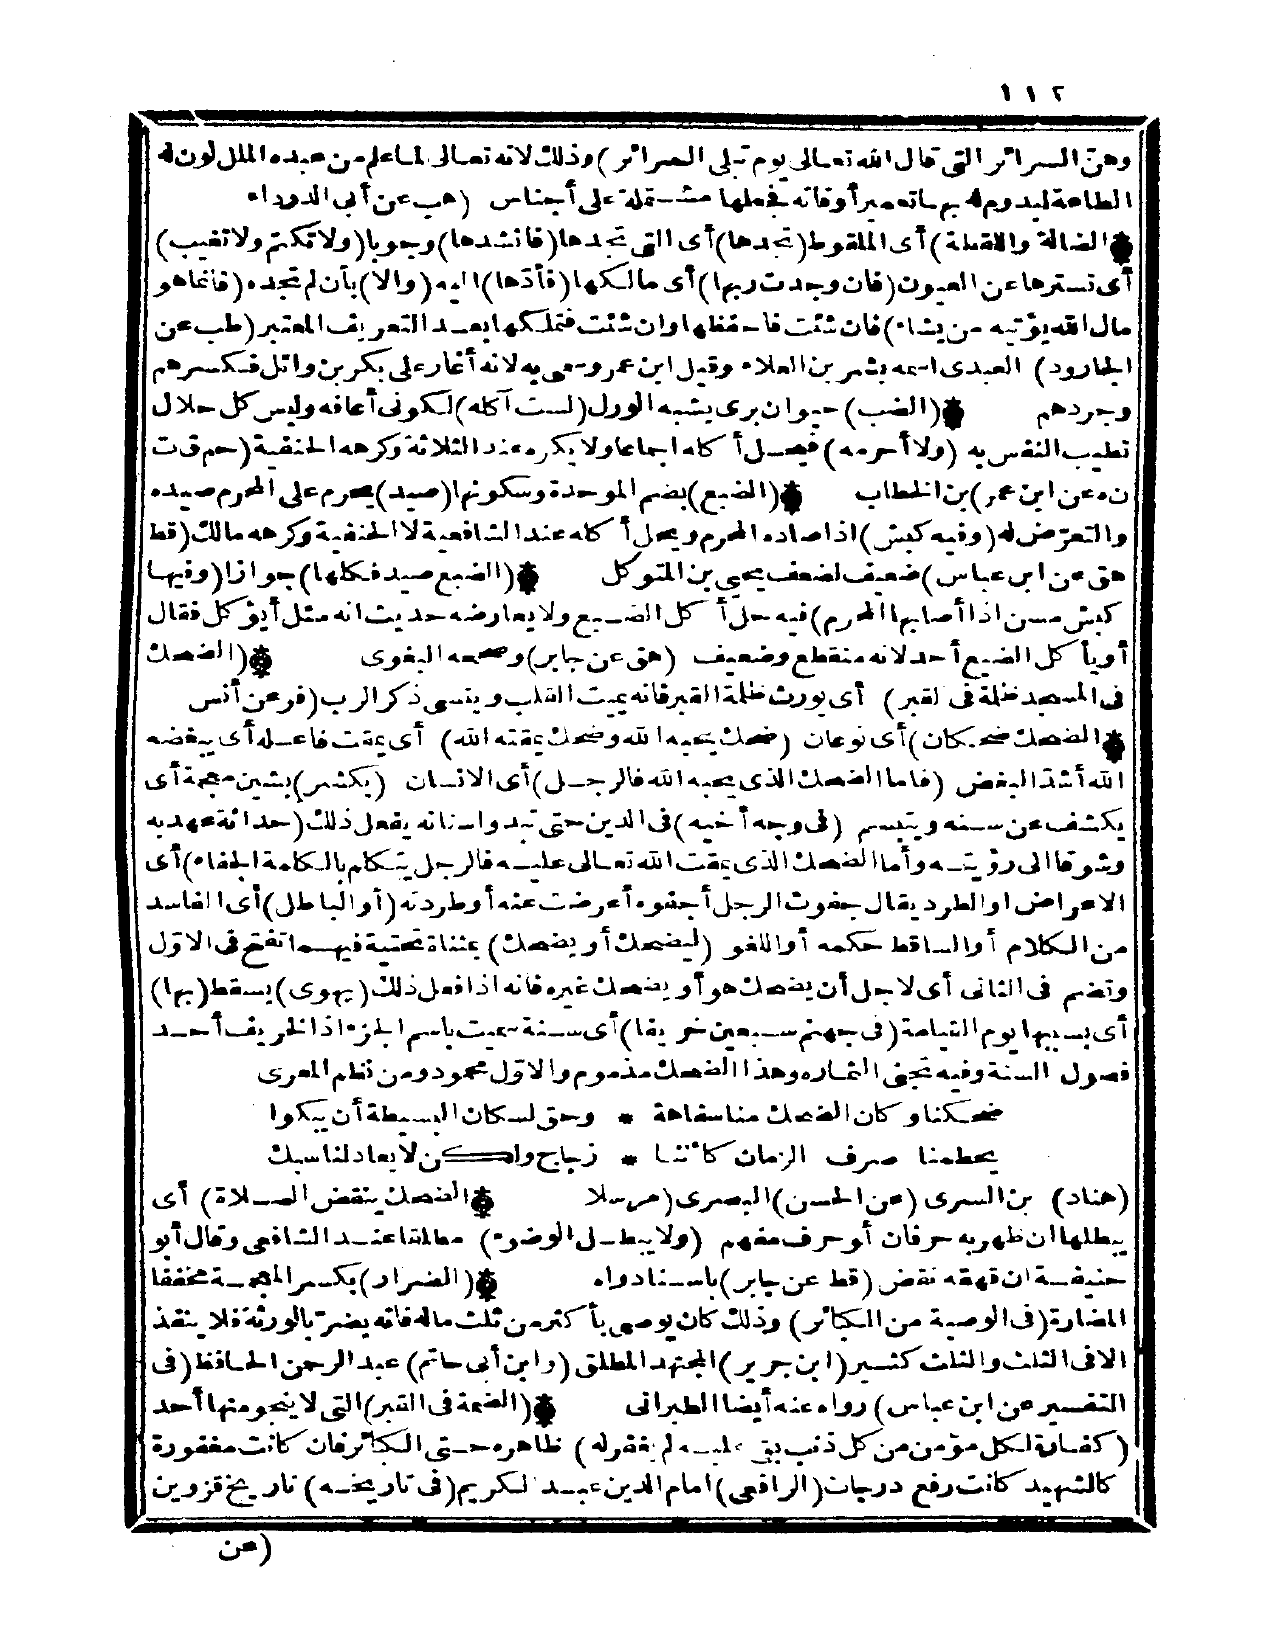 ١١٢
وهن السرائر التي قال الله تعالى يوم تبلى السرائر) وذلك لانه تعالى لما علم من عبده الملل لون له
الطاعة ليدوم له بها تعمير أوقاته فجعلها مشتملة على أجناس (هب عن أبي الدرداء
الضالة واللقطة) أى الملقوط (تجدها) أى التي تجدها (فانشدها) وجوبا (ولا تكتم ولا تغيب)
أى تسترها عن العيون (فان وجدت ربها) أى مالكها (فأدّها) اليه (والا) بأن لم تجده (فانما هو
مال الله يؤتيه من يشاء) فان شئت فاحفظها وان شئت فتملكها بعد التعريف المعتبر (طب عن
الجارود) العبدى اسمه بشر بن العلاء وقيل ابن عمرو سمى به لانه أغار على بكر بن وائل فكسرهم
وجردهم (الضب) حيوان برى يشبه الورل (لست آكله) لكونى أعافه وليس كل حلال
تطيب النفس به (ولا أحرمه) فيحل أكله اجماعا ولا يكره عند الثلاثة وكرهه الحنفية (حم ق ت
ن ه عن ابن عمر) بن الخطاب (الضبع) بضم الموحدة وسكونها (صيد) يحرم على المحرم صيده
والتعرّض له (وفيه كبش) اذا صاده المحرم ويحل أكله عند الشافعية لا الحنفية وكرهه مالك (قط
هق عن ابن عباس) ضعيف لضعف يحيى بن المتوكل (الضبع صيد فكلها) جوازا (وفيها
كبش مسن اذا أصابها المحرم) فيه حل أكل الضبع ولا يعارضه حديث انه سئل أيؤكل فقال
أو يأكل الضبع أحد لانه منقطع وضعيف (هق عن جابر) وصححه البغوى (الضحك
فى المسجد ظلمة فى القبر) أى يورث ظلمة القبر فانه يميت القلب وينسى ذكر الرب (فر عن أنس
الضحك ضحكان) أى نوعان (ضحك يحبه الله وضحك يمقته الله) أى يمقت فاعله أى يبغضه
الله أشدّ البغض (فاما الضحك الذى يحبه الله فالرجل) أى الانسان (يكشر) بشين معجمة أى
يكشف عن سنه ويتبسم (فى وجه أخيه) فى الدين حتى تبدو اسنانه يفعل ذلك (حداثة عهد به
وشوقا الى رؤيته وأما الضحك الذى يمقت الله تعالى عليه فالرجل يتكلم بالكلمة الجفاء) أى
الاعراض او الطرد يقال جفوت الرجل أجفوه أعرضت عنه أو طردته (أو الباطل) أى الفاسد
من الكلام أو الساقط حكمه أو اللغو (ليضحك أو يضحك) بمثناة تحتية فيهما تفتح فى الاول
وتضم فى الثانى أى لاجل أن يضحك هو أو يضحك غيره فانه اذا فعل ذلك (يهوى) يسقط (بها)
أى بسببها يوم القيامة (فى جهنم سبعين خريفا) أى سنة سميت باسم الجزء اذ الخريف أحد
فصول السنة وفيه تجنى الثمار وهذا الضحك مذموم والاول محمود ومن نظم المعرى
ضحكنا وكان الضحك منا سفاهة * وحق لسكان البسيطة أن يبكوا
يحطمنا صرف الزمان كأننا * زجاج ولكن لا يعاد لنا سبك
(هناد) بن السرى (عن الحسن) البصرى (مرسلا الضحك ينقض الصلاة) أى
يبطلها ان ظهر به حرفان أو حرف مفهم (ولا يبطل الوضوء) مطلقا عند الشافعى وقال أبو
حنيفة ان قهقه نقض (قط عن جابر) باسناد واه (الضرار) بكسر المعجمة مخففا
المضارة (فى الوصية من الكبائر) وذلك كأن يوصى بأكثر من ثلث ماله فانه يضرّ بالورثة فلا ينفذ
الا فى الثلث والثلث كثير (ابن جرير) المجتهد المطلق (وابن أبى حاتم) عبد الرحمن الحافظ (فى
التفسير عن ابن عباس) رواه عنه أيضا الطبرانى (الضمة فى القبر) التى لا ينجو منها أحد
(كفارة لكل مؤمن من كل ذنب بقى عليه لم يغفر له) ظاهره حتى الكبائر فان كانت مغفورة
كالشهيد كانت رفع درجات (الرافعى) امام الدين عبد الكريم (فى تاريخه) تاريخ قزوين
(عن